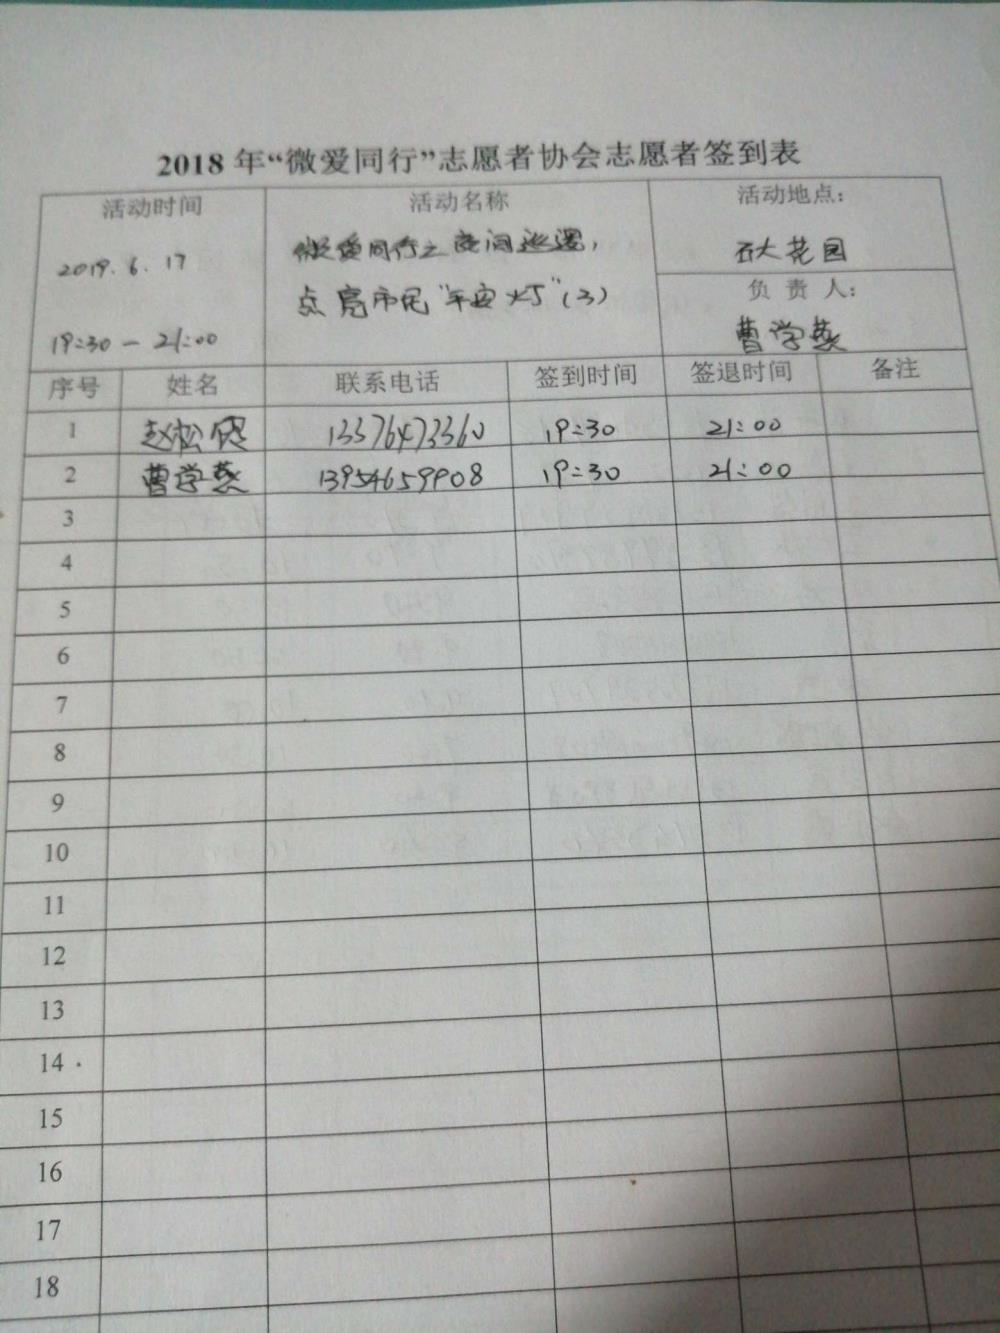 2018 年“微爱同行”志愿者协会志愿者签到表
活动时间 活动名称 活动地点：
2019.6.17 微爱同行之夜间巡逻， 石大花园
点亮市民“平安灯”（3） 负 责 人：
19:30 — 21:00 曹学燕
序号 姓名 联系电话 签到时间 签退时间 备注
1 赵松 13376473360 19:30 21:00
2 曹学燕 13954659908 19:30 21:00
3
4
5
6
7
8
9
10
11
12
13
14
15
16
17
18